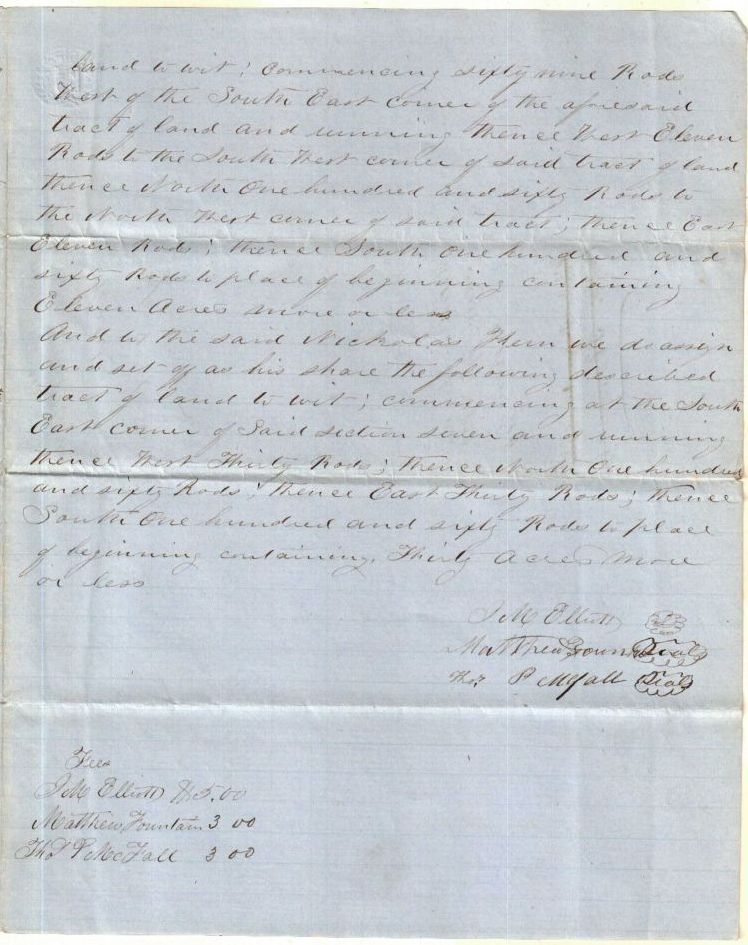 land to wit; commencing sixty nine Rods
West of the South East corner of the aforesaid
tract of land and running thence West Eleven
Rods to the South West corner of said tract of land
thence North One hundred and sixty Rods to
the North West corner of said tract; thence East
Eleven Rods; thence South One hundred and
sixty Rods to place of beginning containing
Eleven Acres more or less
And to the said Nickolas we do assign
and set of as his share the following described
tract of land to wit; commencing at the South
East corner of Said section seven and running
thence West Thirty Rods; thence North One hundred
and sixty Rods; thence East Thirty Rods; thence
South One hundred and sixty Rods to place
of beginning containing Thirty Acres More
or less
J M Elliott
Matthew Fountain Seal
Thos P McFall Seal
Fees
J M Elliott $5.00
Matthew Fountain 3 00
Thos P McFall 3 00